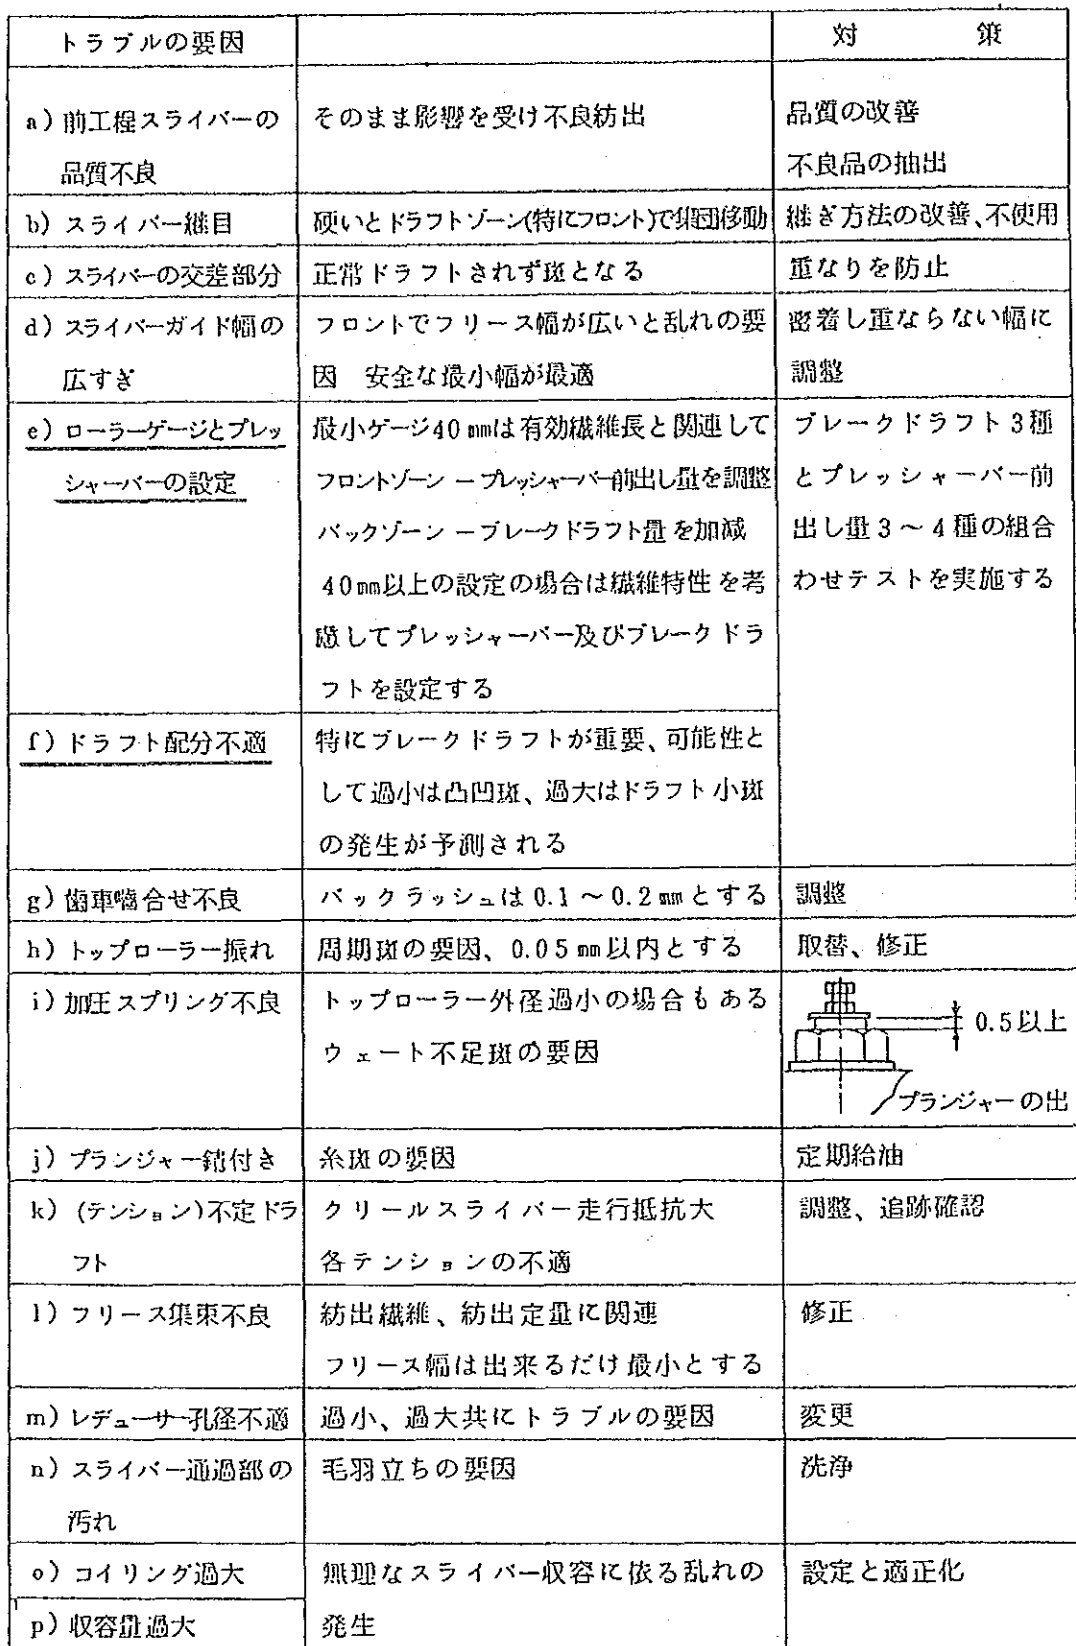 トラブルの要因
対 策
a) 前工程スライバーの
品質不良
そのまま影響を受け不良紡出
品質の改善
不良品の抽出
b) スライバー継目
硬いとドラフトゾーン(特にフロント)で集団移動
継ぎ方法の改善、不使用
c) スライバーの交差部分
正常ドラフトされず斑となる
重なりを防止
d) スライバーガイド幅の
広すぎ
フロントでフリース幅が広いと乱れの要
因 安全な最小幅が最適
密着し重ならない幅に
調整
e) ローラーゲージとプレッ
シャーバーの設定
最小ゲージ40㎜は有効繊維長と関連して
フロントゾーン ープレッシャーバー前出し量を調整
バックゾーン ーブレークドラフト量を加減
40㎜以上の設定の場合は繊維特性を考
慮してプレッシャーバー及びブレークドラ
フトを設定する
ブレークドラフト3種
とプレッシャーバー前
出し量3〜4種の組合
わせテストを実施する
f) ドラフト配分不適
特にブレークドラフトが重要、可能性と
して過小は凸凹斑、過大はドラフト小斑
の発生が予測される
g) 歯車噛合せ不良
バックラッシュは0.1〜0.2㎜とする
調整
h) トップローラー振れ
周期斑の要因、0.05㎜以内とする
取替、修正
i) 加圧スプリング不良
トップローラー外径過小の場合もある
ウェート不足斑の要因
0.5以上
プランジャーの出
j) プランジャー錆付き
糸斑の要因
定期給油
k) (テンション)不定ドラ
フト
クリールスライバー走行抵抗大
各テンションの不適
調整、追跡確認
l) フリース集束不良
紡出繊維、紡出定量に関連
フリース幅は出来るだけ最小とする
修正
m) レデューサー孔径不適
過小、過大共にトラブルの要因
変更
n) スライバー通過部の
汚れ
毛羽立ちの要因
洗浄
o) コイリング過大
p) 収容量過大
無理なスライバー収容に依る乱れの
発生
設定と適正化